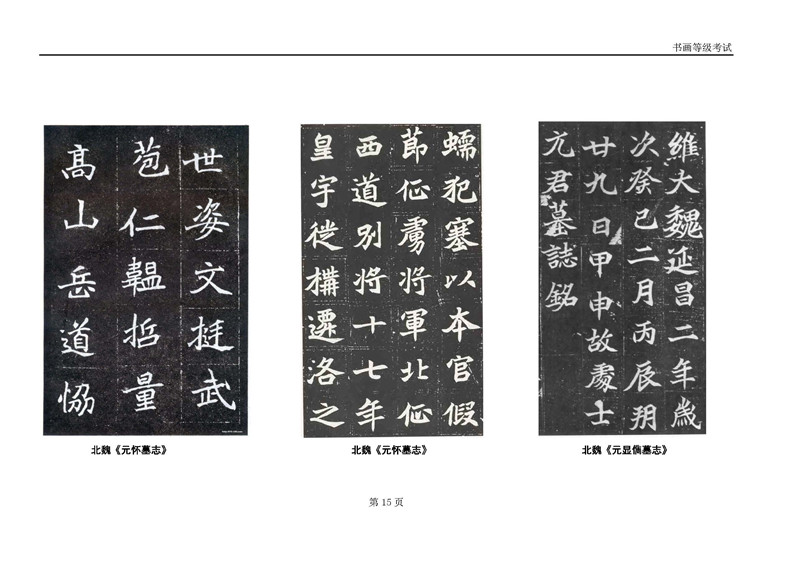 书画等级考试
世姿文挺武
苞仁韞哲量
髙山岳道恊
蠕犯塞以本官假
節征虜将軍北征
西道别将十七年
皇宇徙構遷洛之
維大魏延昌二年歲
次癸巳二月丙辰朔
廿九日甲申故處士
元君墓誌銘
北魏《元怀墓志》
北魏《元怀墓志》
北魏《元显儁墓志》
第 15 页